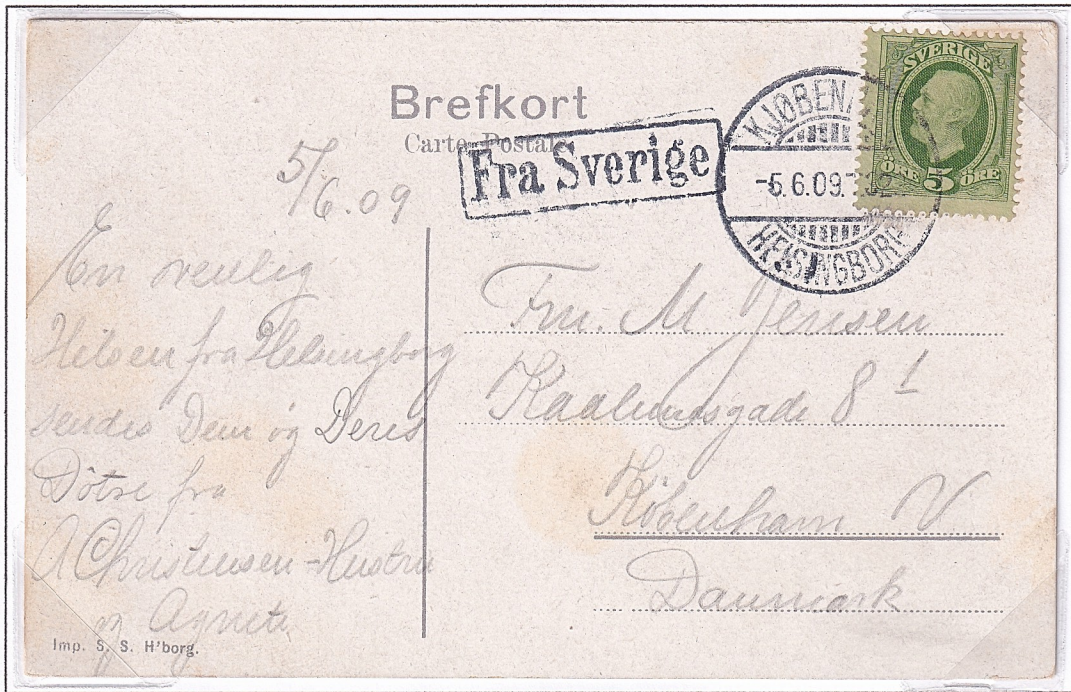 Brefkort
Carte Postale
Fra Sverige
KJØBENH
-5.6.09.
HELSINGBORG
SVERIGE
ÖRE 5 ÖRE
5/6.09
En venlig
Hilsen fra Helsingborg
sendes Dem og Deres
Døtre fra
A Christensen - Hustru
og Agnete
Fru. M Jensen
Kaalundsgade 8 1
København V
Danmark
Imp. S. S. H'borg.